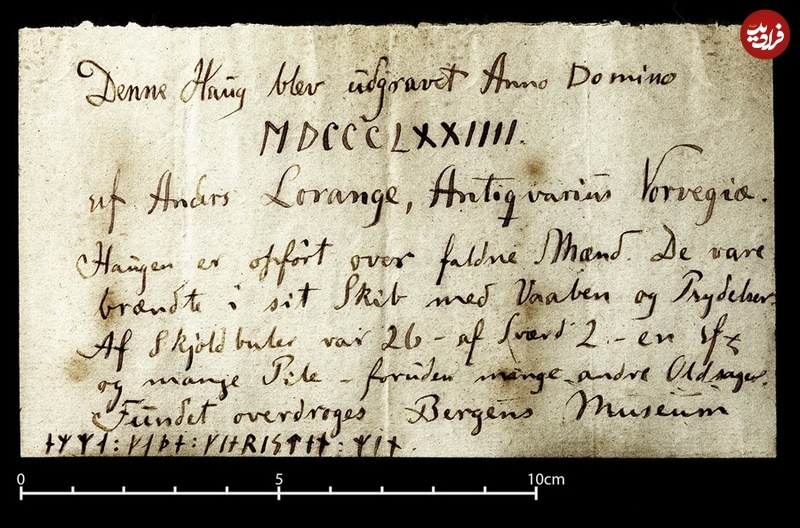 فرادید
Denne Haug blev udgravet Anno Domino
MDCCCLXXIIII.
af Anders Lorange, Antiqvarius Norvegiæ.
Haugen er opfört over faldne Mænd. De vare
brændte i sit Skib med Vaaben og Prydelser.
Af Skjoldbuler var 26 - af Sværd 2 - en
og mange Pile - foruden mange andre Oldsager.
Fundet overdroges Bergens Museum
0 5 10cm